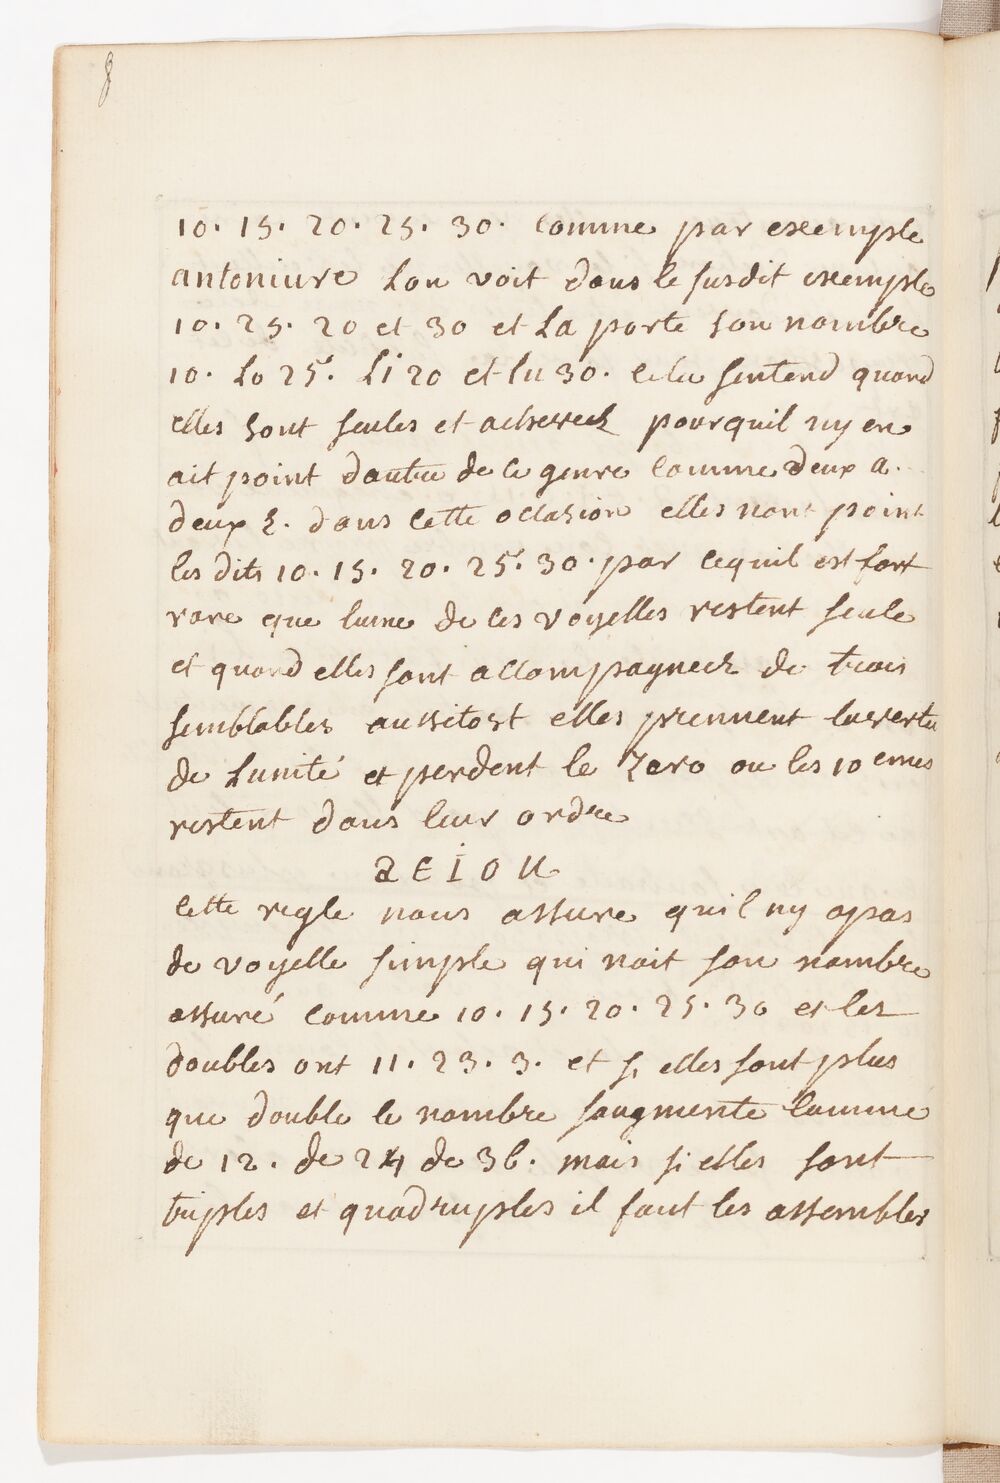 8
10. 15. 20. 25. 30. Comme par exemple
antoniure Lon voit dans le susdit exemple
10. 25. 20 et 30 et La porte son nombre
10. Lo 25. Li 20 et lu 30. Cela sentend quand
elles sont seules et acheveez pourquil ny en
ait point dautre de ce genre Comme deux a..
deux E. dans Cette occasion elles nont point
les dits 10. 15. 20. 25. 30. par cequil est fort
rare que lune de ces voyelles restent seule
et quand elles sont accompagneez de trois
semblables aussitost elles prennent la vertu
de Lunité et perdent le Zero ou les 10 emes
restent dans leur ordre
a E I O U
Cette regle nous assure quil ny apas
de voyelle simple qui nait son nombre
assuré Comme 10. 15. 20. 25. 30 et les
doubles ont 11. 23. 3. et si elles sont plus
que double le nombre saugmente Comme
de 12. de 24 de 36. mais si elles sont
triples et quadruples il faut les assembler